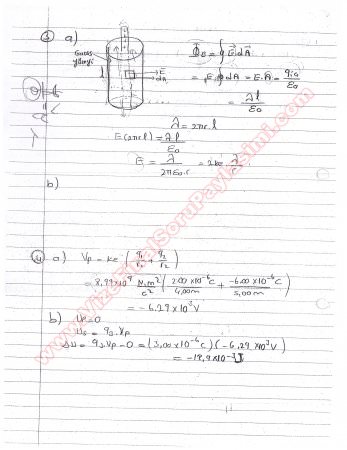 ③ a)
Gauss yüzeyi
l
E⃗
dA⃗
Φ_E = ∮ E⃗ dA⃗
= E ∮ dA = E.A = q_iç / ε₀
= λl / ε₀
A = 2πr.l
E(2πrl) = λl / ε₀
E = λ / 2πε₀.r = 2ke λ / r
b)
④ a) Vp = ke (q₁/r₁ + q₂/r₂)
= 8,99x10⁹ N.m²/c² (2.00x10⁻⁶C / 4,00m + -6.00x10⁻⁶C / 5,00m)
= -6,29x10³V
b) Ui=0
Us = q₃.Vp
ΔU = q₃.Vp - 0 = (3,00x10⁻⁶C)(-6,29x10³V)
= -18,9x10⁻³J
www.VizeFinalSoruPaylasimi.com